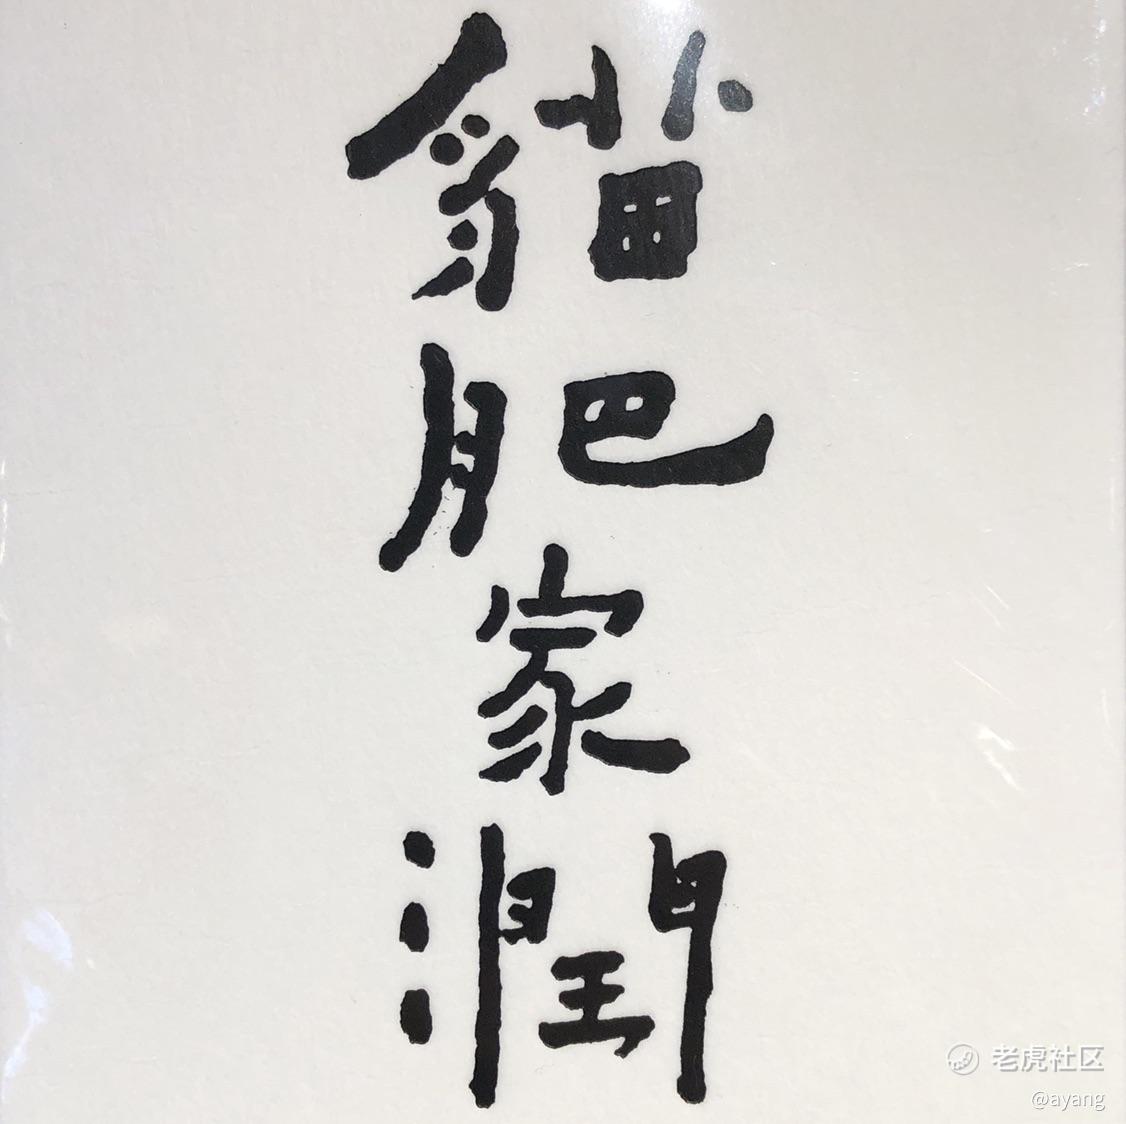 貓肥家潤
老虎社区
@ayang